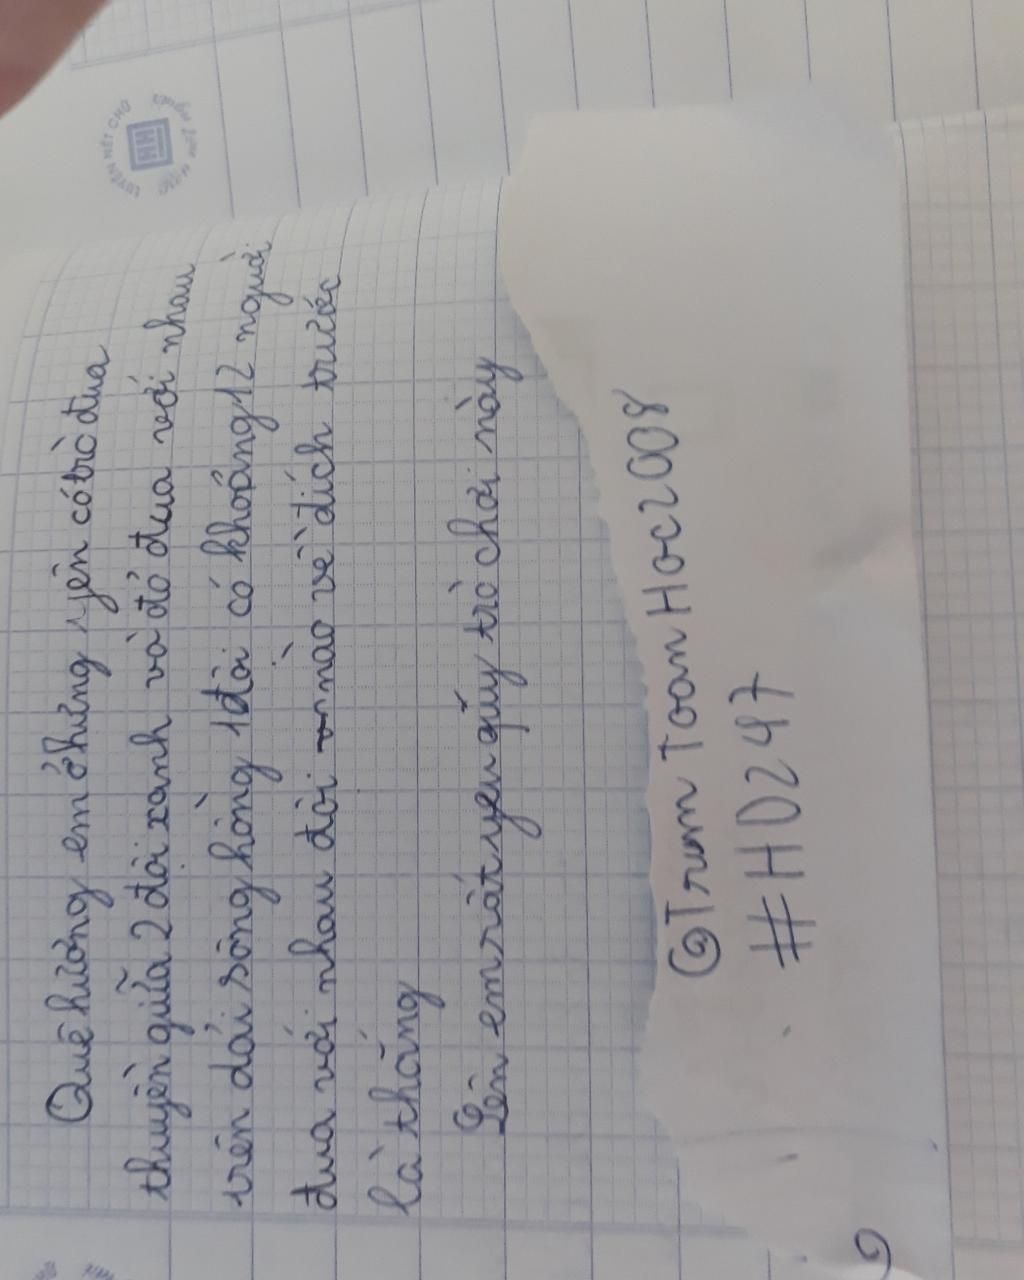 Quê hương em ở hưng yên có trò đua
thuyền giữa 2 đội xanh và đỏ đua với nhau
trên dải sông hồng 1 đội có khoảng 12 người
đua với nhau đội nào về đích trước
là thắng
Lên em rất yêu qúy trò chơi này
@Trum Toan Hoc2008
#HD247
LUYỆN NÉT CHỮ
HH